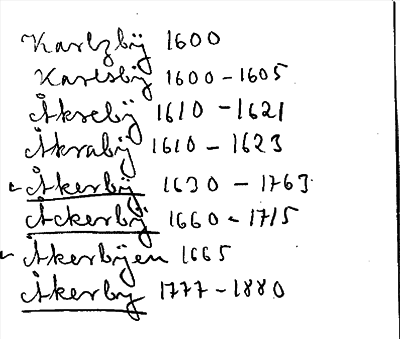 Karlzbÿ 1600
Karlsbÿ 1600-1605
Åkrebÿ 1610-1621
Åkrabÿ 1610-1623
Åkerbÿ 1630-1763
Ackerbÿ 1660-1715
Åkerbÿen 1665
Åkerby 1777-1880